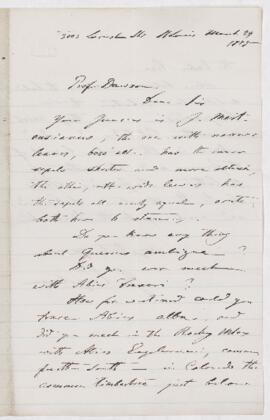 3003 Locust St. St Louis March 29
1883
Prof. Dawson
Dear Sir
Your Juncus is J.
the one with narrow
leaves, has the inner
sepals shorter and more obtuse,
the other, with wide leaves has
the sepals all nearly equal, acute;
both have 6 stamens.
Do you know any thing
about Quercus ambigua?
Did you ever meet
with Abies Fraseri?
How far westward could you
trace Abies alba, and
did you meet in the Rocky Mts
with Abies Engelmanni, common
farther South — in Colorado the
common timber tree just below